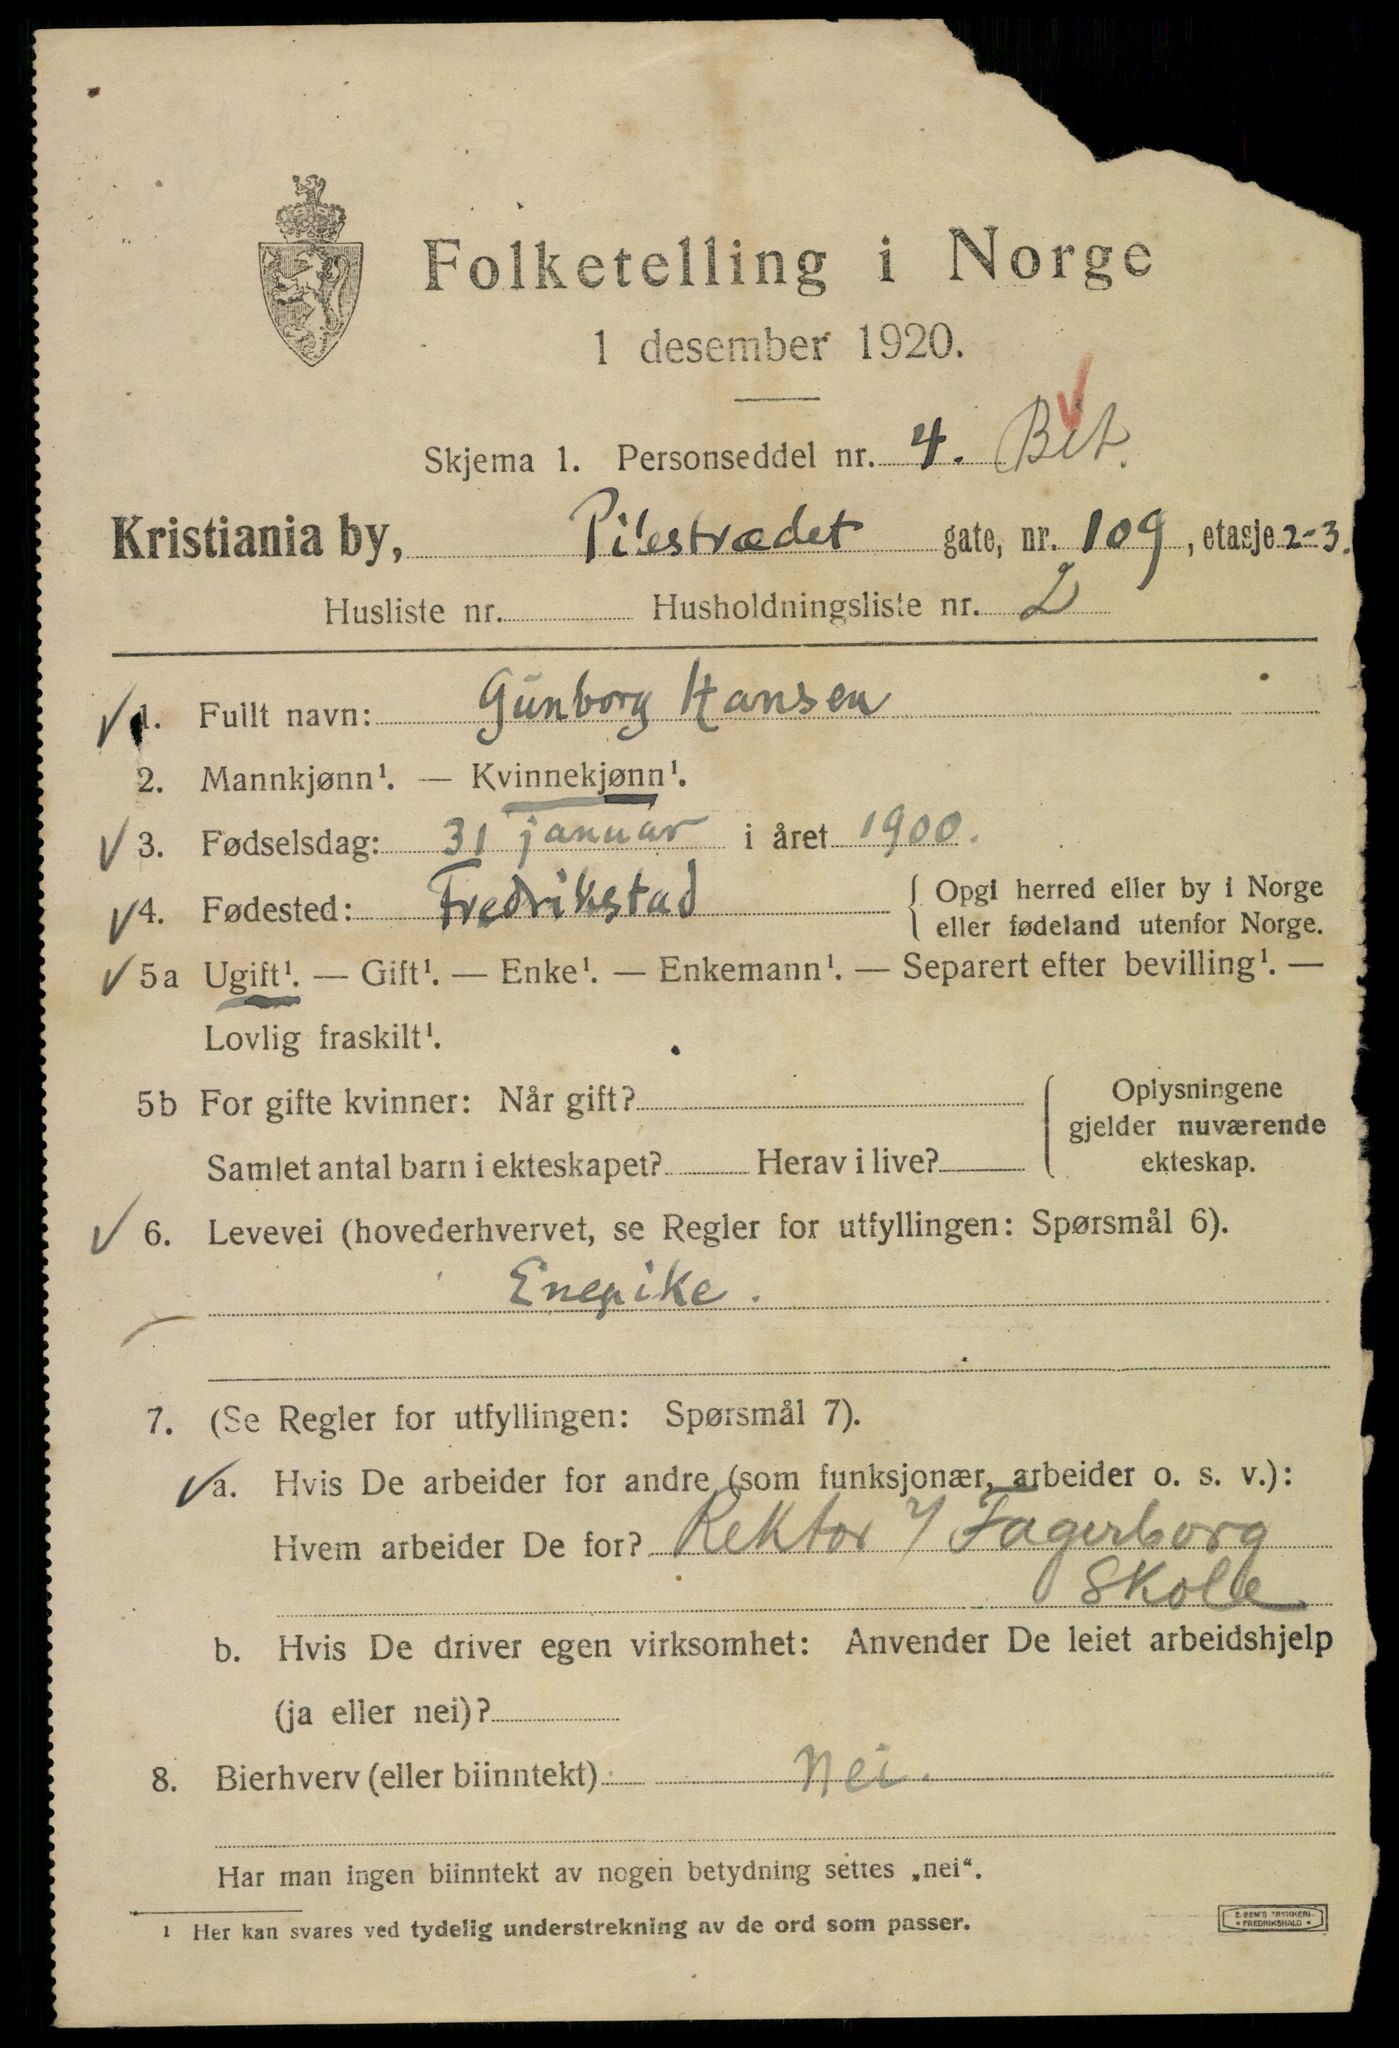 Folketelling i Norge
1 desember 1920.
Skjema 1. Personseddel nr. 4. Bet.
Kristiania by, Pilestrædet gate, nr. 109, etasje 2-3.
Husliste nr. Husholdningsliste nr. 2
1. Fullt navn: Gunborg Hansen
2. Mannkjønn¹. — Kvinnekjønn¹.
3. Fødselsdag: 31 januar i året 1900.
4. Fødested: Fredrikstad { Opgi herred eller by i Norge
eller fødeland utenfor Norge.
5a Ugift¹. — Gift¹. — Enke¹. — Enkemann¹. — Separert efter bevilling¹. —
Lovlig fraskilt¹.
5b For gifte kvinner: Når gift? { Oplysningene
gjelder nuværende
Samlet antal barn i ekteskapet? Herav i live? ekteskap.
6. Levevei (hovederhvervet, se Regler for utfyllingen: Spørsmål 6).
Enepike.
7. (Se Regler for utfyllingen: Spørsmål 7).
a. Hvis De arbeider for andre (som funksjonær, arbeider o. s. v.):
Hvem arbeider De for? Rektor v/ Fagerborg
Skole
b. Hvis De driver egen virksomhet: Anvender De leiet arbeidshjelp
(ja eller nei)?
8. Bierhverv (eller biinntekt) Nei.
Har man ingen biinntekt av nogen betydning settes „nei“.
1 Her kan svares ved tydelig understrekning av de ord som passer.
E. SEM'S TRYKKERI
• FREDRIKSHALD •